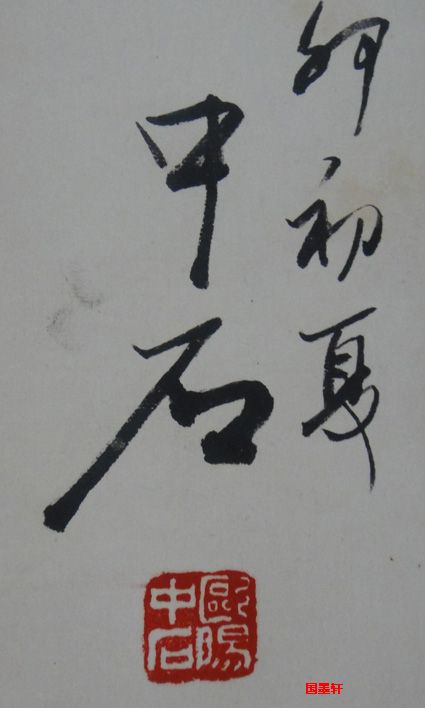 卯初夏
中石
歐陽中石
国墨轩